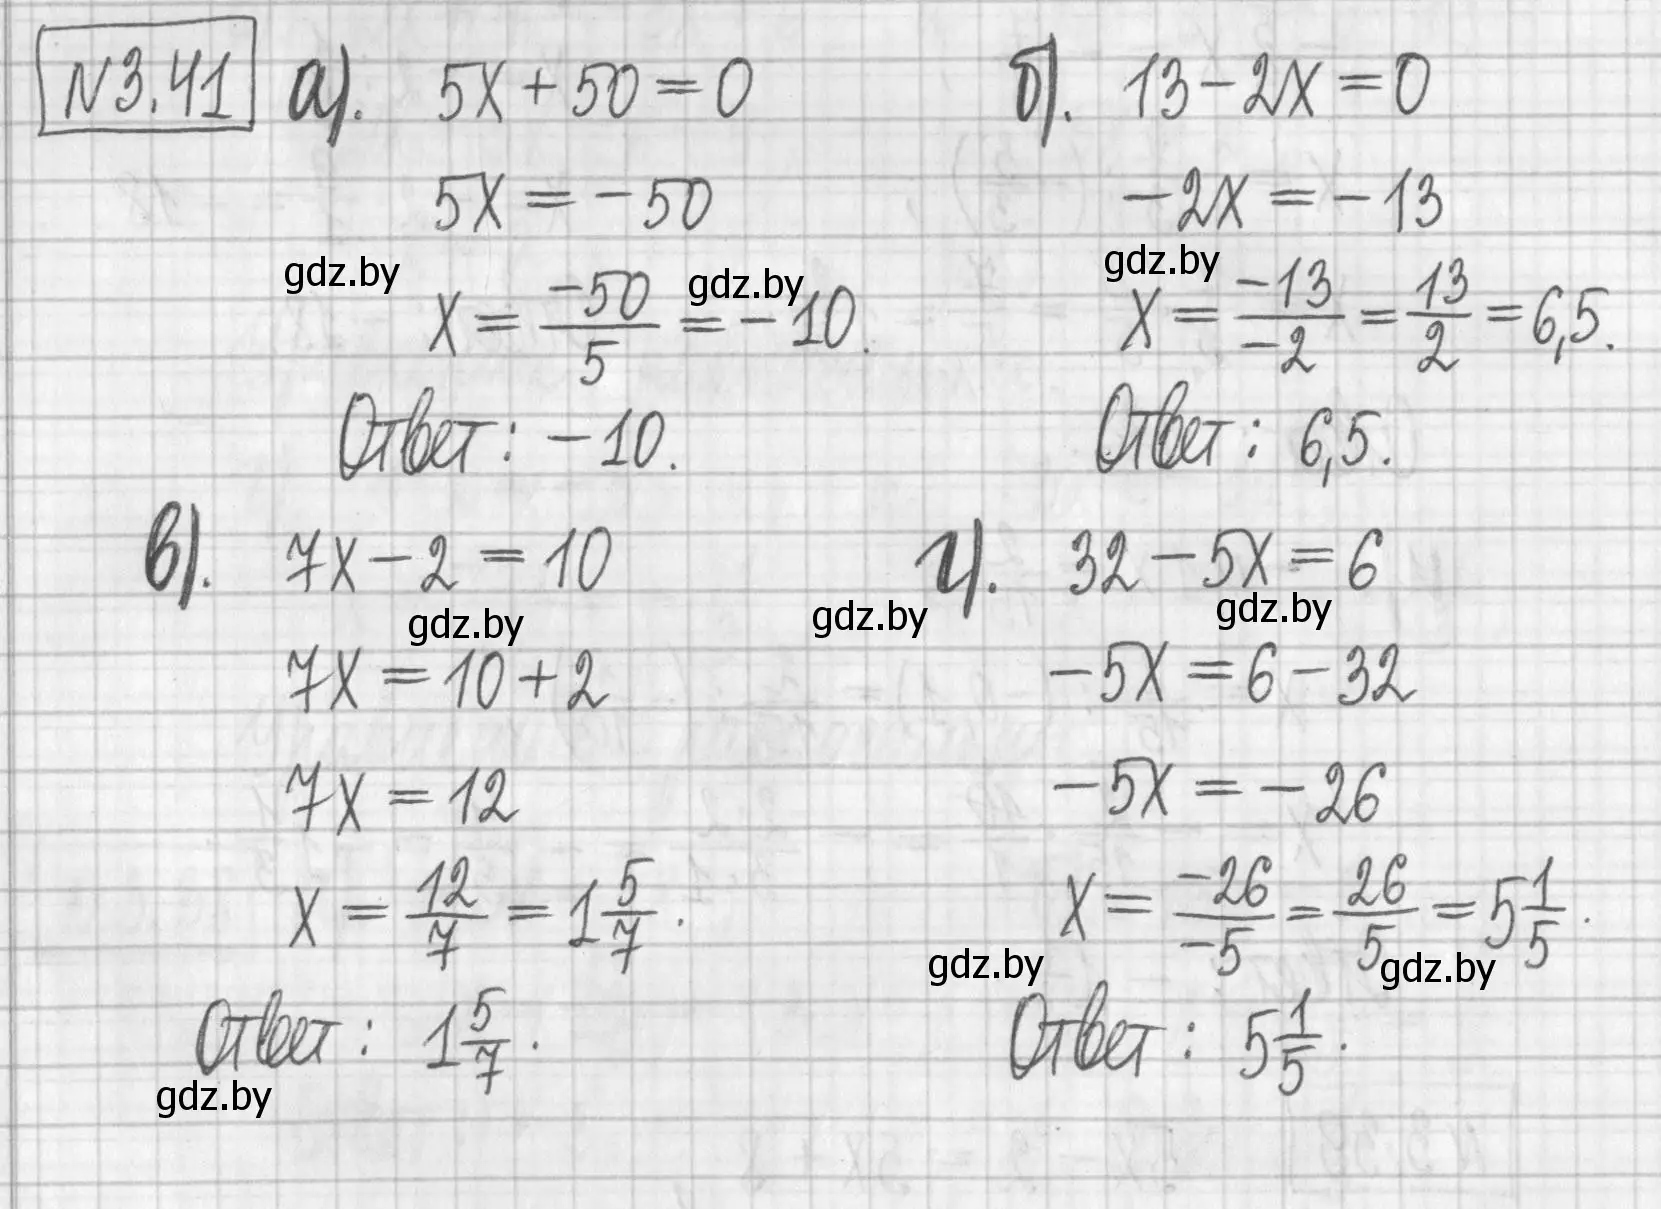 N3.41 а). 5x + 50 = 0
5x = -50
gdz.by
x = -50/5 = -10.
gdz.by
Ответ: -10.
б). 13 - 2x = 0
-2x = -13
gdz.by
x = -13/-2 = 13/2 = 6,5.
Ответ: 6,5.
в). 7x - 2 = 10
gdz.by
7x = 10 + 2
7x = 12
x = 12/7 = 1 5/7.
Ответ: 1 5/7.
gdz.by
г). 32 - 5x = 6
gdz.by
gdz.by
-5x = 6 - 32
-5x = -26
x = -26/-5 = 26/5 = 5 1/5.
gdz.by
gdz.by
Ответ: 5 1/5.